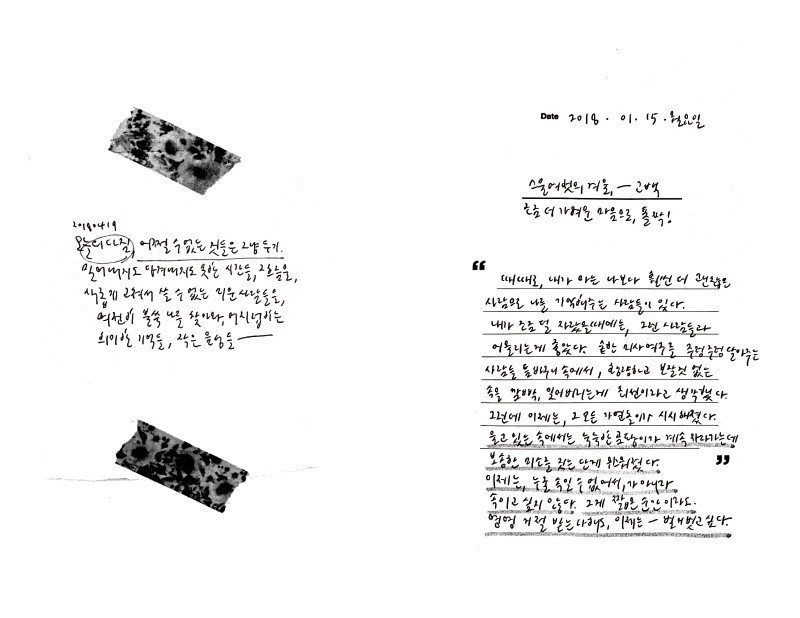 20180419
오늘의 다짐, 어쩔 수 없는 것들은 그냥 두기.
밀어내지도 당겨내지도 못한 시간들, 그 흐름을,
새롭게 고쳐서 쓸 수 없는 지운 사람들을,
여전히 불쑥 나를 찾아와, 어지럽히는
희미한 기억들, 작은 음성들 —
Date 2018 . 01 . 15 . 월요일
스물여덟의 겨울, — 고백
조금 더 가벼운 마음으로, 풀썩!
“
때때로, 내가 아는 나보다 훨씬 더 괜찮은
사람으로 나를 기억해주는 사람들이 있다.
내가 조금 덜 자랐을 때에는, 그런 사람들과
어울리는게 좋았다. 숱한 미사여구를 주렁주렁 달아주는
사람들 틈바구니 속에서, 보잘것 없는
속을 깜빡, 잊어버리는게 최선이라고 생각했다.
그런데 이제는, 그 모든 가 시시해졌다.
울고 있는 속에서는 눅눅한 곰팡이가 계속 자라가는데
뽀송한 미소를 짓는 단계 위로웠다.
”
이제는, 누굴 속일 수 없어서,가 아니라
속이고 싶지 않다. 그게 짧은 순간이라도.
영영 거절 받는다해도, 이제는 — 벌거벗고 싶다.